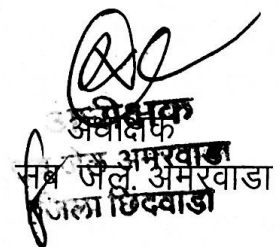 अधीक्षक
अधीक्षक
सब जेल अमरवाडा
सब जेल. अमरवाडा
जिला छिंदवाडा